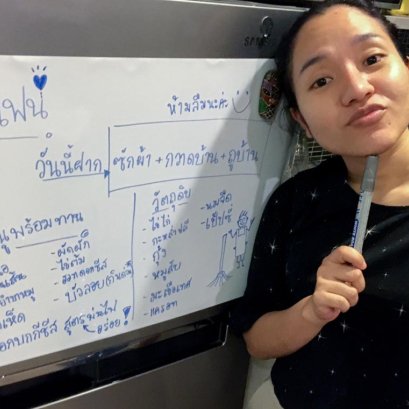 SAMSUNG
แฟน
ห้ามลืมนะค่ะ
วันนี้ฝาก ซักผ้า + กวาดบ้าน + ถูบ้าน
นูพร้อมทาน
วัตถุดิบ
- ผัดผัก
- ไข่ต้ม
- บัวลอย
- ไข่ไก่
- กะหล่ำปลี
- กุ้ง
- หมูสับ
- มะเขือเทศ
- แครอท
- นมจืด
เห็ด
อกบกกีซีส สูตรนั่นไฟ
อร่อย!